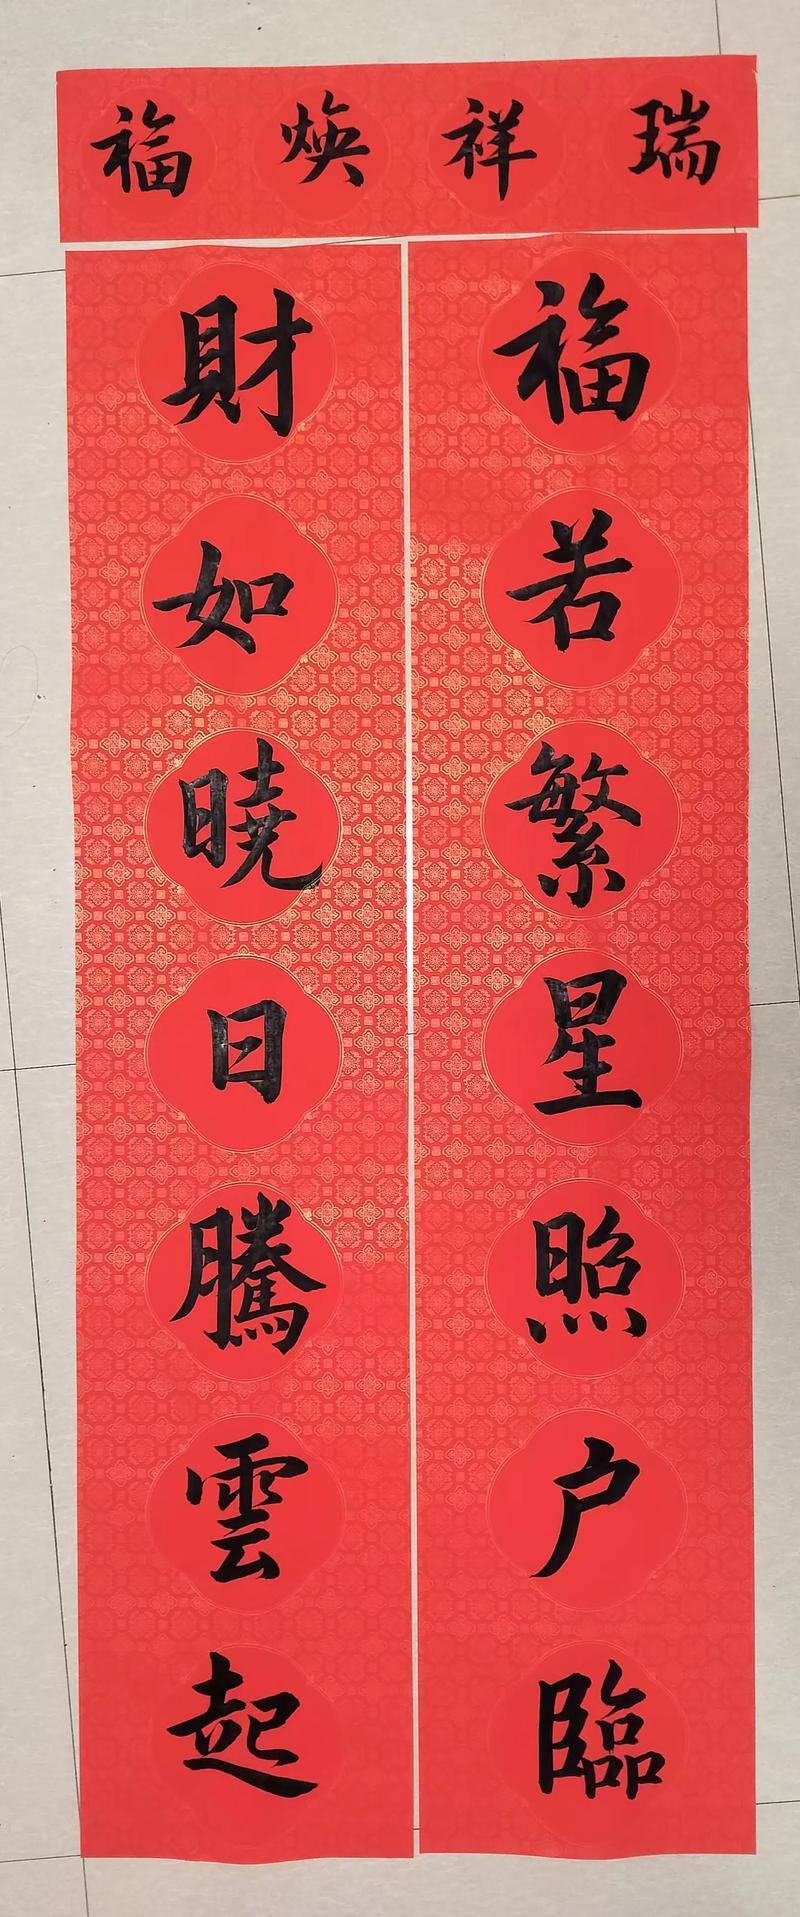 瑞祥焕福
福若繁星照户臨
財如曉日騰雲起